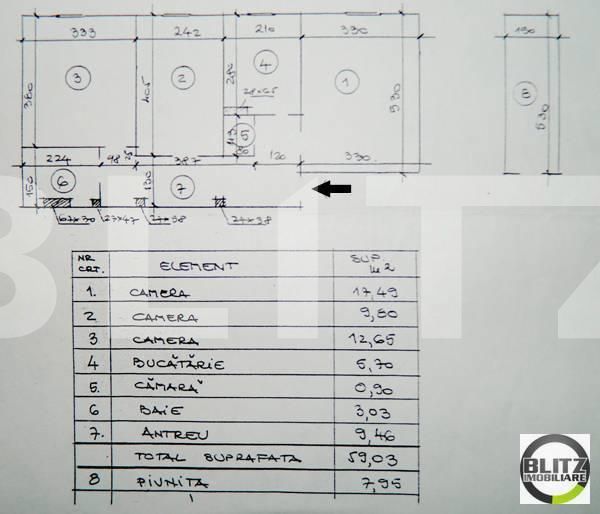 333 242 210 330 190
3 2 4 1 8
380 405 280 530 530
28x65
113 5
90
224 98 25 387 120 330
160 6 130 7
67x30 27x47 27x38 27x38
BLITZ
NR CRT. ELEMENT SUP m2
1. CAMERA 17,49
2 CAMERA 9,80
3 CAMERA 12,65
4 BUCĂTĂRIE 5,70
5. CĂMARĂ 0,90
6 BAIE 3,03
7. ANTREU 9,46
TOTAL SUPRAFATA 59,03
8 PIVNITA 7,95
BLITZ
IMOBILIARE